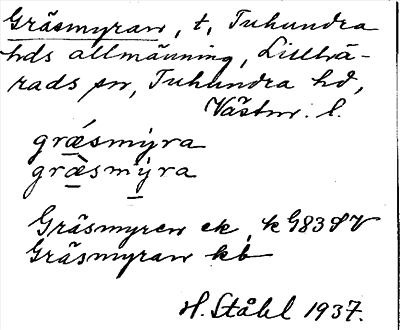 Gräsmyran, t, Tuhundra
hds allmänning, Lillhä-
rads sn, Tuhundra hd,
Västm. l.
græ´smýra
græ`smýra
Gräsmyren ek, k G83 SV
Gräsmyran kb
H. Ståhl 1937.